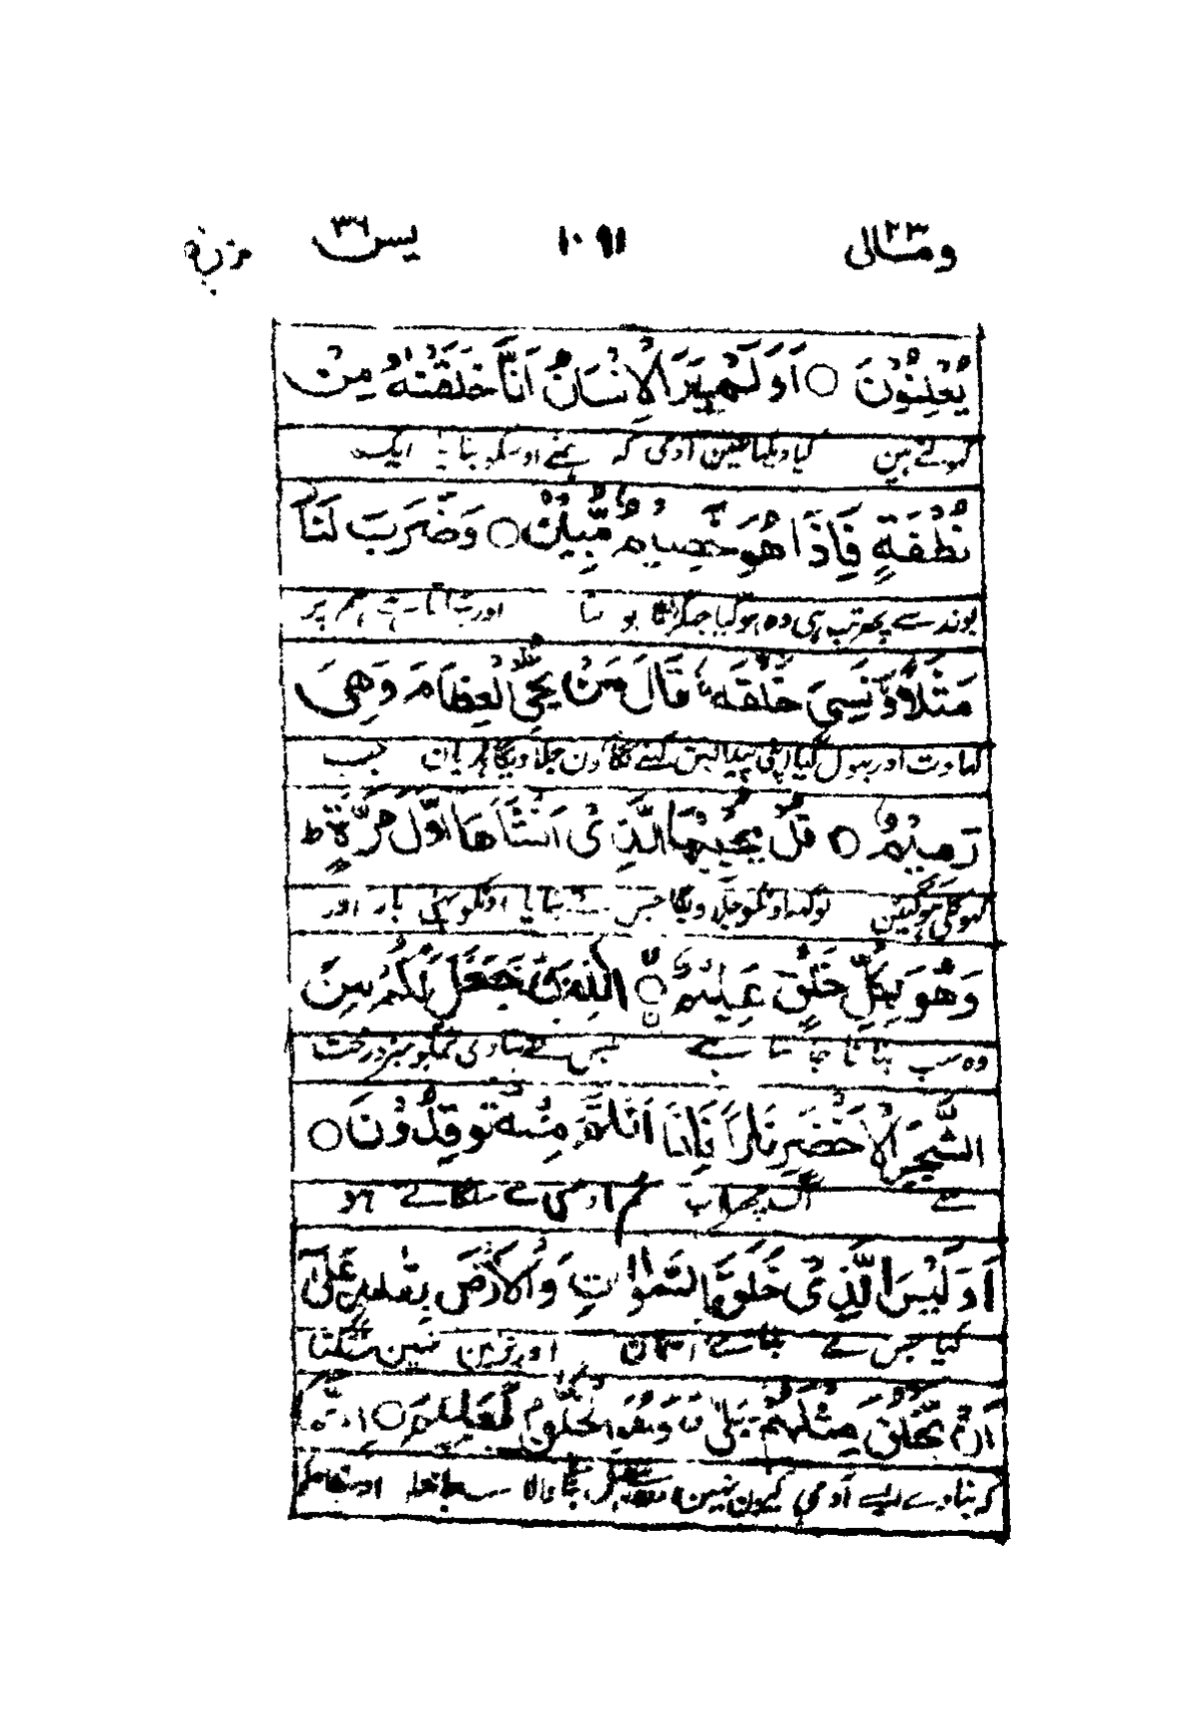 ومالی ٢٣ ١٠٩١ یس ٣٦
يُعْلِنُوْنَ ○ اَوَلَمْ يَرَ الْاِنْسَانُ اَنَّا خَلَقْنٰهُ مِنْ
کھولتے ہین کیا دیکھا نہین آدمی کہ ہمنے اوسکو بنایا ایک
نُّطْفَةٍ فَاِذَا هُوَ خَصِيْمٌ مُّبِيْنٌ ○ وَضَرَبَ لَنَا
بوند سے پھر تب ہی وہ ہوگیا جھگڑتا بولتا اور بٹھاتا ہے ہم پر
مَثَلًا وَّنَسِيَ خَلْقَهٗ ؕ قَالَ مَنْ يُّحْيِ الْعِظَامَ وَهِيَ
کہاوت اور بھول گیا اپنی پیدائش کہنے لگا کون جلاویگا ہڈیان جب
رَمِيْمٌ ○ قُلْ يُحْيِيْهَا الَّذِيْ اَنْشَاَهَا اَوَّلَ مَرَّةٍ ط
کھوکھلی ہوگئین توکہہ اونکو جلاویگا جس نے بنایا اونکو پہلی بار اور
وَهُوَ بِكُلِّ خَلْقٍ عَلِيْمٌ ○ الَّذِيْ جَعَلَ لَكُمْ مِنَ
وہ سب بنانا جانتا ہے جس نے بنا دی تمکو سبز درخت
الشَّجَرِ الْاَخْضَرِ نَارًا فَاِذَا اَنْتُمْ مِنْهُ تُوْقِدُوْنَ ○
سے آگ پھر اب تم اوس سے سلگاتے ہو
اَوَلَيْسَ الَّذِيْ خَلَقَ السَّمٰوٰتِ وَالْاَرْضَ بِقٰدِرٍ عَلٰٓى
کیا جس نے بنائے آسمان اور زمین نہین سکتا
اَنْ يَّخْلُقَ مِثْلَهُمْ بَلٰى وَهُوَ الْخَلّٰقُ الْعَلِيْمُ ○ اِنَّمَا
کہ بناوے ایسے آدمی کیون نہین اور بنانے والا سب جانتا اوسکا حکم